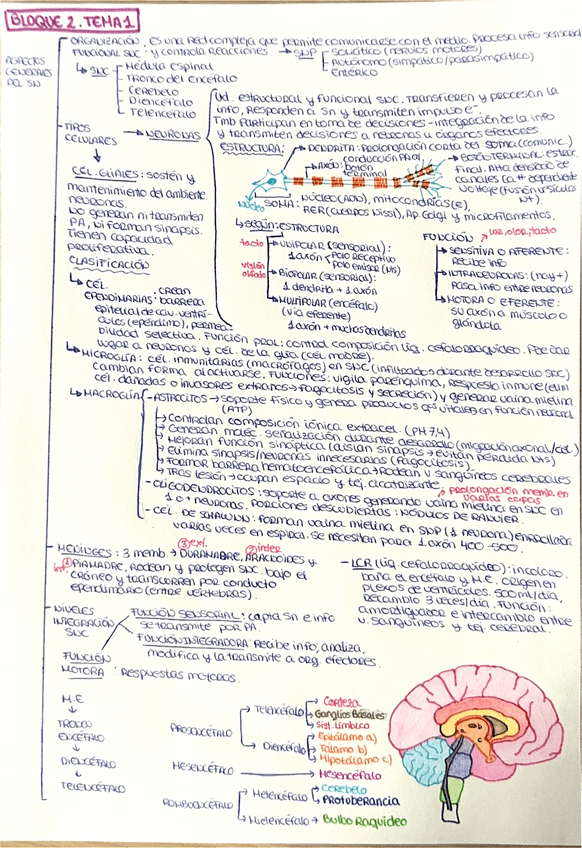 BLOQUE 2. TEMA 1
ASPECTOS GENERALES DEL SN
ORGANIZACIÓN: ES una red compleja que permite comunicarse con el medio. Procesa info sensorial
FUNCIONAL SNC: y controla reacciones → SNP
Somático (nervios motores)
Autónomo (simpático/parasimpático)
Entérico
↳ SNC
Médula espinal
Tronco del encéfalo
Cerebelo
Diencéfalo
Telencéfalo
TIPOS CELULARES
→ NEURONAS
Ud. estructural y funcional SNC. Transfieren y procesan la
info, Responden a Sn y transmiten impulso e-
Tmb participan en toma de decisiones - integración de la info
y transmiten decisiones a neuronas u órganos efectores.
ESTRUCTURA:
DENDRITA: Prolongación corta del soma (comunic.)
AXÓN: botón terminal
conducción PA
BOTÓN TERMINAL: Estruc. final. Alta densidad de
canales Ca+ dependiente
voltaje (fusión vesículas Nt).
Núcleo
SOMA: Núcleo (ADN), mitocondrias (e),
RER (cuerpos Nissl), Ap. Golgi y microfilamentos.
↳ SEGÚN: ESTRUCTURA
tacto
UNIPOLAR (sensorial):
1 axón
Polo receptivo
Polo emisor (Nts)
visión olfato
BIPOLAR (sensorial):
1 dendrita + 1 axón
MULTIPOLAR (encéfalo)
(vía eferente)
1 axón + muchas dendritas
FUNCIÓN
luz, olor, tacto
SENSITIVA O AFERENTE:
Recibe info
INTRANEURONAS: (hay +)
Pasa info entre neuronas
MOTORA O EFERENTE:
su axón a músculo o
glándula
CEL. GLIALES: sostén y
mantenimiento del ambiente
neuronas.
No generan ni transmiten
PA, ni forman sinapsis.
Tienen capacidad
proliferativa.
CLASIFICACIÓN
↳ CEL. EPENDIMARIAS: crean barrera
epitelial de cav. ventrículos (epéndimo), permeabilidad selectiva. Función ppal: control composición líq. cefalorraquídeo. Puede dar
lugar a neuronas y cél. de la glía (cél madre).
↳ MICROGLÍA: cél. inmunitarias (macrófagos) en SNC (infiltrados durante desarrollo SNC)
cambian forma al activarse. Funciones: vigila parénquima, respuesta inmune (elim
cél. dañadas o invasores extraños → fagocitosis y secreción) y generar vaina mielina
↳ MACROGLÍA
ASTROCITOS → soporte físico y genera productos qcos vitales en función neuronal
(ATP)
Controlan composición iónica extracel. (pH 7,4)
Generan moléc. señalización durante desarrollo (migración axonal/cel)
Mejoran función sináptica (aíslan sinapsis → evitan pérdida Nts)
Elimina sinapsis/neuronas innecesarias (fagocitosis).
Formar barrera hematoencefálica → Rodean v. sanguíneos cerebrales
Tras lesión → ocupan espacio y tej. cicatrizante.
prolongación memb. en varias capas
- OLIGODENDROCITOS: soporte a axones generando vaina mielina SNC en
1 o + neuronas. Porciones descubiertas: NÓDULOS DE RANVIER.
- CÉL. DE SCHWANN: forman vaina mielina en SNP (1 neurona) enrollada
varias veces en espiral. Se necesitan para 1 axón 400-500.
MENINGES: 3 memb. →
③ ext.
DURAMADRE,
② inter
ARACNOIDES y
int. ① PIAMADRE, Rodean y protegen SNC. bajo el
cráneo y transcurren por conducto
ependimario (entre vértebras).
- LCR (líq. cefalorraquídeo): incoloro.
baña el encéfalo y M.E. origen en
plexos de ventrículos. 500ml/día,
Recambio 3 veces/día. Función:
amortiguador e intercambio entre
v. sanguíneos y tej. cerebral.
NIVELES INTEGRACIÓN SNC
FUNCIÓN SENSORIAL: capta Sn e info
se transmite por PA.
FUNCIÓN INTEGRADORA: Recibe info, analiza,
modifica y la transmite a org. efectores.
FUNCIÓN MOTORA: Respuestas motoras.
M.E
↓
TRONCO ENCÉFALO
↓
DIENCÉFALO
↓
TELENCÉFALO
PROSENCÉFALO
Telencéfalo
Corteza
Ganglios Basales
Sist. límbico
Diencéfalo
Epitálamo a)
Tálamo b)
Hipotálamo c)
MESENCÉFALO → Mesencéfalo
ROMBOENCÉFALO
Metencéfalo
Cerebelo
Protuberancia
Mielencéfalo → Bulbo Raquídeo